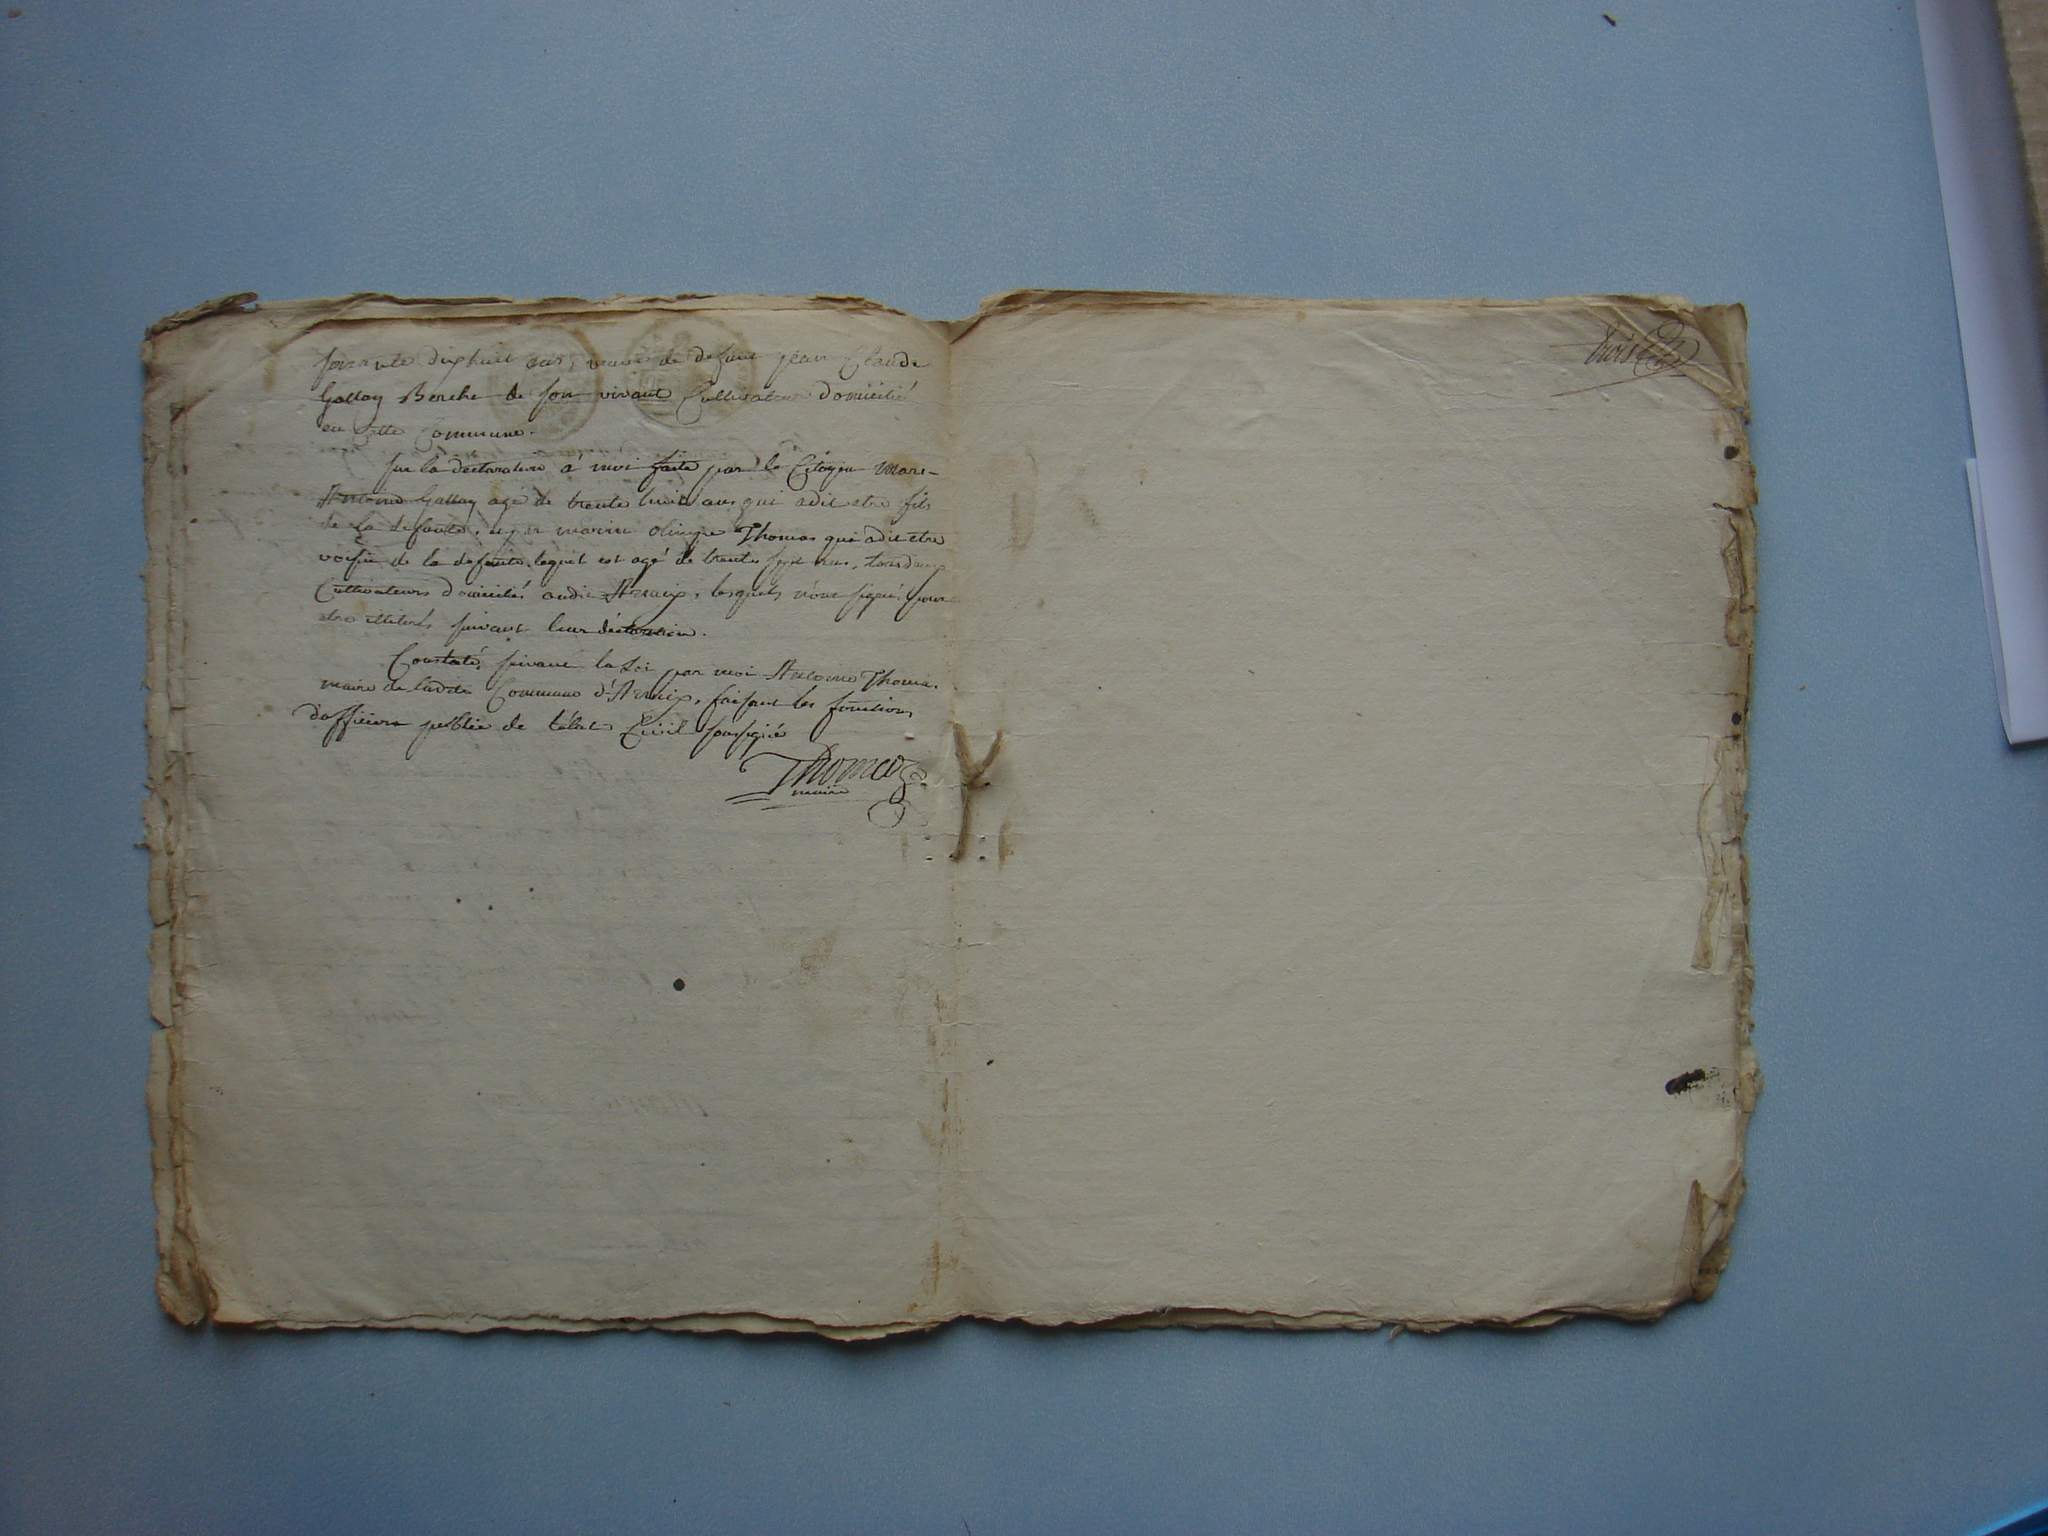 soixante dixhuit ans, veuve de defunt jean Claude
Gallay Berche de son vivant Cultivateur domicilié
en cette Commune.
sur la déclaration à moi faite par le Citoyen Marc-
Antoine Gallay agé de trente huit ans, qui adit etre fils
de la defunte, et par Thomas qui adit etre
voisin de la defunte, lequel est agé de trente sept ans, tous deux
Cultivateurs domiciliés audit Arvaix, lesquels n'ont signé pour
etre illiterés suivant leur déclaration.
Constaté, suivant la Loi par moi Antoine Thomas
maire de ladite Commune d'Arvaix, faisant les fonctions
d'officier public de l'état Civil soussigné
Thomas
maire
trois